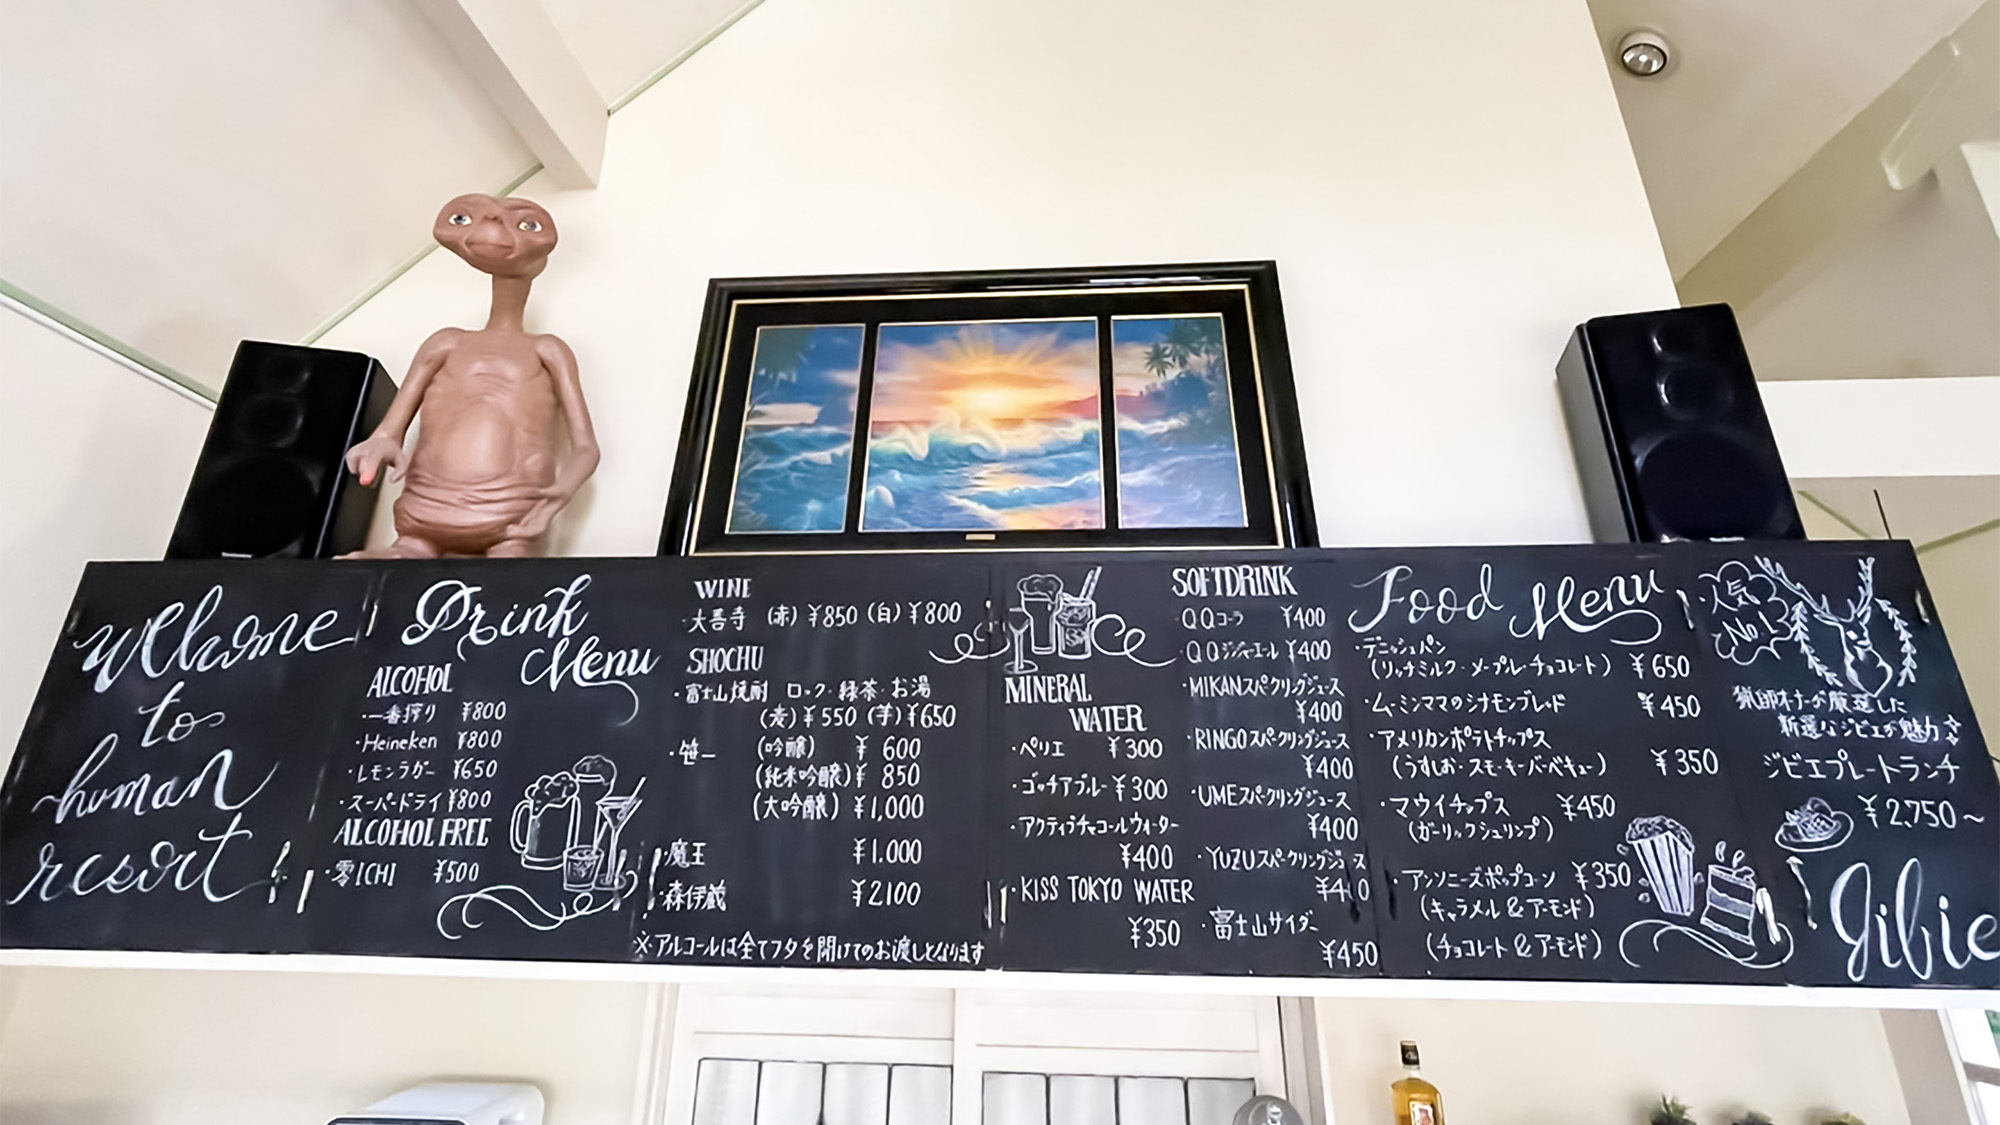 Welcome
to
human
resort
Drink
Menu
ALCOHOL
・一番搾り ¥800
・Heineken ¥800
・レモンラガー ¥650
・スーパードライ ¥800
ALCOHOL FREE
・零ICHI ¥500
WINE
・大吾寺 (赤) ¥850 (白) ¥800
SHOCHU
・富士山焼酎 ロック・緑茶・お湯
(麦) ¥550 (芋) ¥650
・笹一 (吟醸) ¥600
(純米吟醸) ¥850
(大吟醸) ¥1,000
・魔王 ¥1.000
・森伊蔵 ¥2100
※アルコールは全てフタを開けてのお渡しとなります
MINERAL
WATER
・ペリエ ¥300
・ゴッチアブルー ¥300
・アクティブチャコールウォーター
¥400
・KISS TOKYO WATER
¥350
SOFTDRINK
・QQコーラ ¥400
・QQジンジャーエール ¥400
・MIKANスパークリングジュース
¥400
・RINGOスパークリングジュース
¥400
・UMEスパークリングジュース
¥400
・YUZUスパークリングジュース
¥400
・富士山サイダー
¥450
Food Menu
・デニッシュパン
(リッチミルク・メープル・チョコレート) ¥650
・ムーミンママのシナモンブレッド ¥450
・アメリカンポテトチップス
(うすしお・スモーキーバーベキュー) ¥350
・マウイチップス ¥450
(ガーリックシュリンプ)
・アンソニーズポップコーン ¥350
(キャラメル&アーモンド)
(チョコレート&アーモンド)
人気
No.1
猟師オーナーが厳選した
新鮮なジビエが魅力
ジビエプレートランチ
¥2,750〜
Jibie